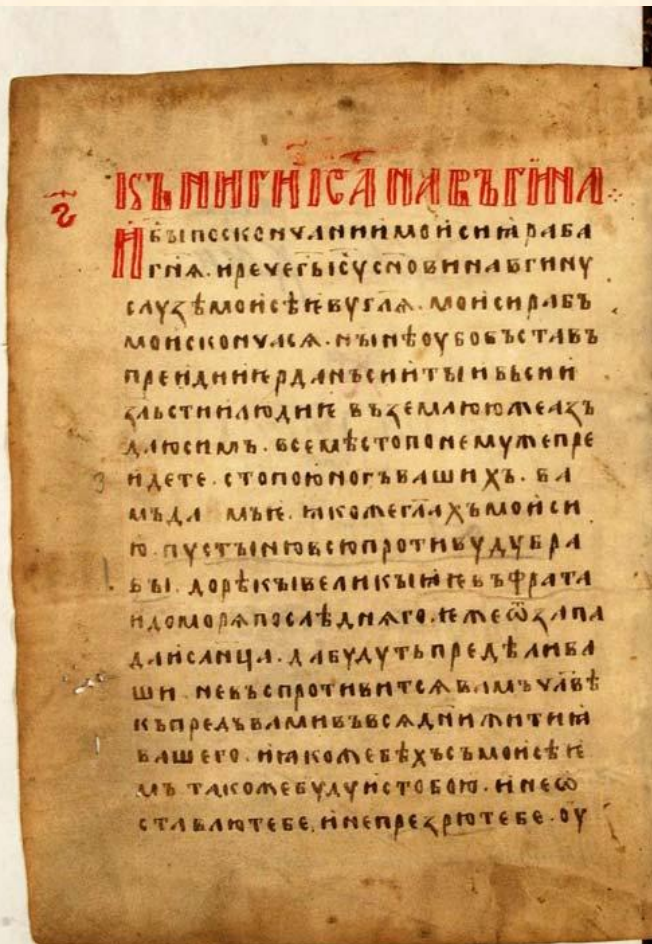 КЪНИГИ ІСА НАВЪГИНА
И БЫ ПО СКОНЧАНИИ МОИСИꙖ РАБА
ГНѦ. И РЕЧЕ ГЬ ІСУ СНОВИ НАВГИНУ
СЛУЗѢ МОИСѢѤВУ ГЛѦ. МОИСИ РАБЪ
МОИ СКОНЧАСѦ. НЫНѢ ОУБО ВЪСТАВЪ
ПРЕИДИ ИѤРДАНЪ СИИ ТЫ И ВЬСИ И
ꙀЛЬСТИИ ЛЮДИѤ ВЪ ꙀЕМЛЮ ЮЖЕ АꙀЪ
ДАЮ СИМЪ. ВСЕ МѢСТО ПО НЕМУЖЕ ПРЕ
ИДЕТЕ. СТОПОЮ НОГЪ ВАШИХЪ. ВА
МЪ ДА МЪ Ѥ. ꙖКОЖЕ ГЛАХЪ МОИСИ
Ю. ПУСТЫНЮ ВСЮ ПРОТИВУ ДУБРА
ВЫ. ДО РѢКЫ ВЕЛИКЫꙖ ѤВЪФРАТА
И ДО МОРѦ ПОСЛѢДНѦГО. ѤЖЕ Ѿ ꙀАПА
ДА И СЛНЦА. ДА БУДУТЬ ПРЕДѢЛИ ВА
ШИ. НЕ ВЪСПРОТИВИТСѦ ВАМЪ ЧЛВѢ
КЪ ПРЕДЪ ВАМИ ВЪ ВСѦ ДНИ ЖИТИꙖ
ВАШЕГО. И ꙖКОЖЕ БѢХЪ СЪ МОИСѢѤ
МЬ ТАКОЖЕ БУДУ И С ТОБОЮ. И НЕ Ѡ
СТАВЛЮ ТЕБЕ, И НЕ ПРЕꙀРЮ ТЕБЕ. ОУ